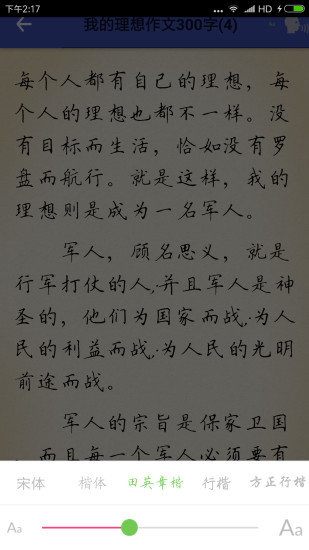 下午2:17
HD
我的理想作文300字(4)
每个人都有自己的理想，每
个人的理想也都不一样。没
有目标而生活，恰如没有罗
盘而航行。就是这样，我的
理想则是成为一名军人。
军人，顾名思义，就是
行军打仗的人,并且军人是神
圣的，他们为国家而战,为人
民的利益而战,为人民的光明
前途而战。
军人的宗旨是保家卫国
，而且每一个军人必须要有
宋体 楷体 田英章楷 行楷 方正行楷
Aa Aa